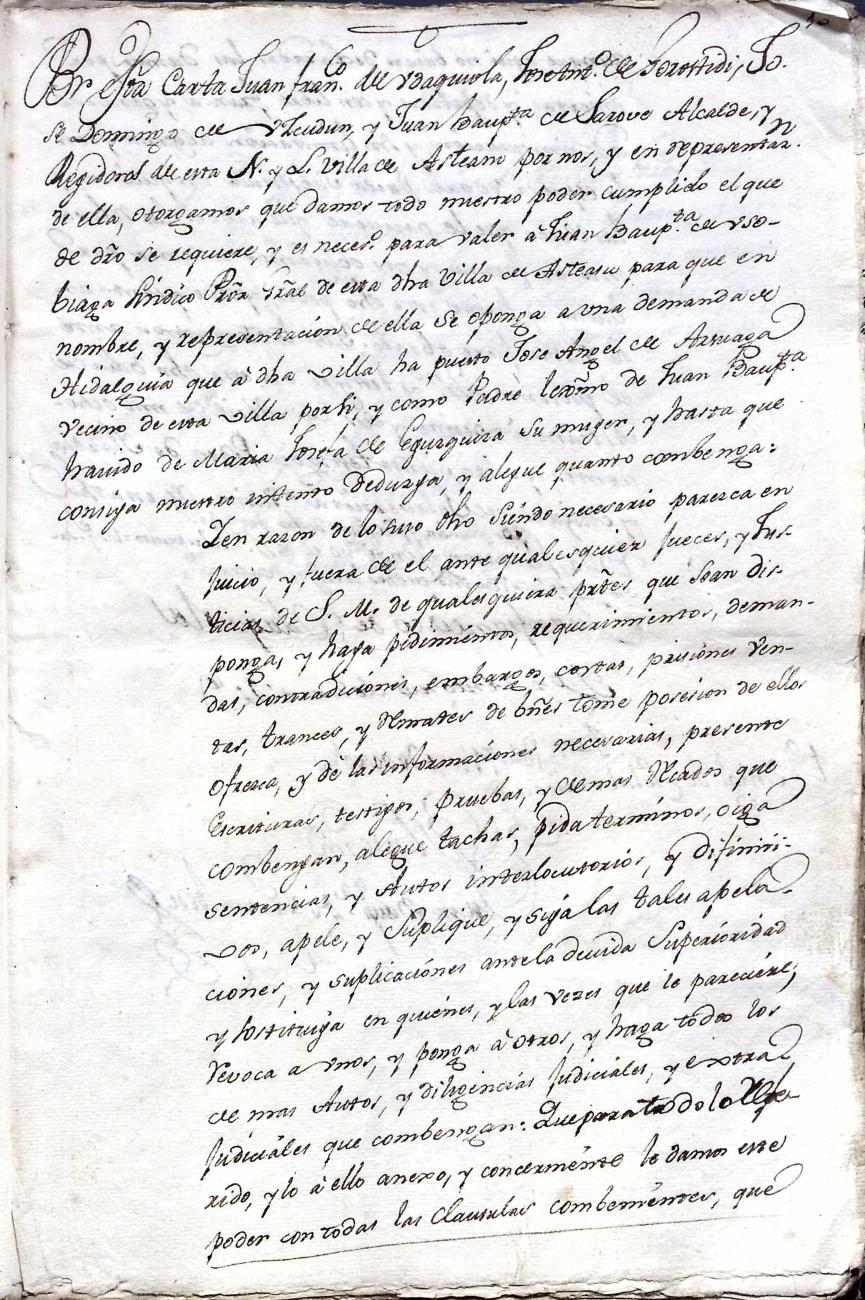 Por esta Carta Juan fran.co de Vaquiola, Jose Ant.o de Sorostidi, Jo-
se Domingo de Vzcudun, y Juan Baup.ta de Sarove Alcalde, y
Regidores de esta N. y L. Villa de Asteasu por nos, y en representaz.n
de ella, otorgamos que damos todo nuestro poder cumplido el que
de dro se requiere, y es neces.o para valer â Juan Baup.ta de Vso-
biaga Sindico Pror Gral de esta dha Villa de Asteasu para que en
nombre, y representacion de ella se oponga a una demanda de
Hidalguia que â dha villa ha puesto Jose Angel de Arteaga
vecino de esta villa por si, y como Padre lexmo de Juan Baup.ta
havido de Maria Josefa de Eguzquiza su muger, y hasta que
consiga nuestro intento deduzga, y alegue quanto combenga:
Jen razon de lo suso dho siendo necesario paresca en
juicio, y fuera de el ante qualesquier jueces, y Jus-
ticias de S. M. de qualesquiera prtes que sean dis-
ponga, y haga pedimientos, requerimientos, deman-
das, contradiciones, embargos, costas, prisiones ven-
tas, trances, y Remates de bnes tome posesion de ellos
ofresca, y dê las informaciones necesarias, presente
Escrituras, testigos, pruebas, y demas Recados que
combengan, alegue tachas, pida terminos, oiga
sentencias, y Autos interlocutorios, y difiniti-
vos, apele, y suplique, y siga las tales apela-
ciones, y suplicaciones ante la devida Superioridad
y sostituya en quienes, y las vezes que le pareciere,
revoca a vnos, y ponga â otros, y haga todos los
de mas Autos, y diligencias Judiciales, y extra
Judiciales que combengan: Que para todo lo Refe-
rido, y lo â ello anexo, y concerniente le damos este
poder con todas las Clausulas combenientes, que